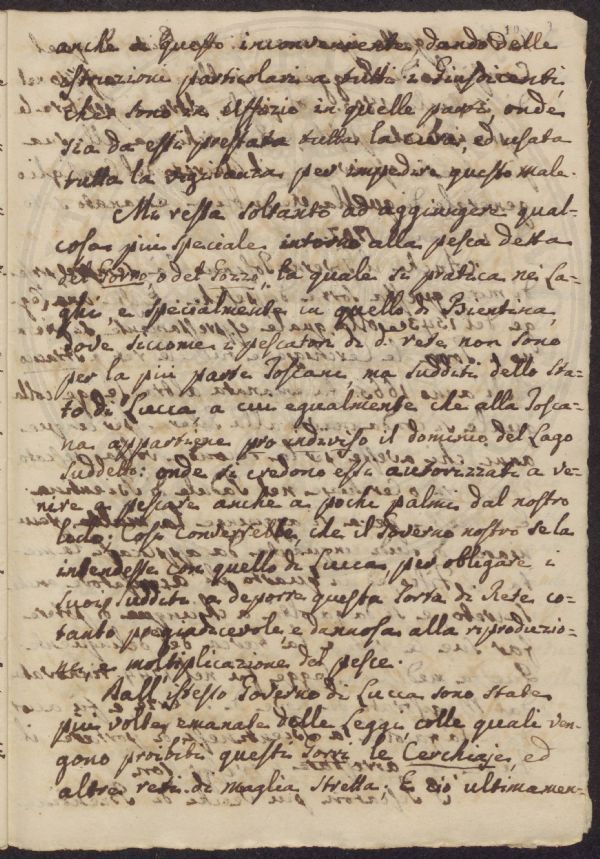 anche a questo inconveniente, dando delle
istruzioni particolari a tutti i Giusdicenti,
che sono in Uffizio in quelle parti, onde
sia da essi prestata tutta la cura, ed usata
tutta la vigilanza per impedire questo male.
Mi resta soltanto ad aggiugere qual-
cosa più speciale intorno alla pesca detta
del Gorro, o del Gozzo, la quale si pratica nei La-
ghi, e specialmente in quello di Bientina,
dove siccome i pescatori di d. rete non sono
per la più parte Toscani, ma sudditi dello Sta-
to di Lucca, a cui egualmente che alla Tosca-
na appartiene pro indiviso il dominio del Lago
suddetto: onde si credono essi autorizzati a ve-
nire a pescare anche a pochi palmi dal nostro
lido; Così converrebbe, che il Governo nostro se la
intendesse con quello di Lucca per obligare i
suoi sudditi a deporre questa sorta di Rete co-
tanto pregiudicevole, e dannosa alla riproduzio-
ne, e moltiplicazione del pesce.
Dall'istesso Governo di Lucca sono state
più volte emanate delle Leggi, colle quali ven-
gono proibiti questi Gorri, le Cerchiaje, ed
altre reti di maglia stretta; E ciò ultimamen-